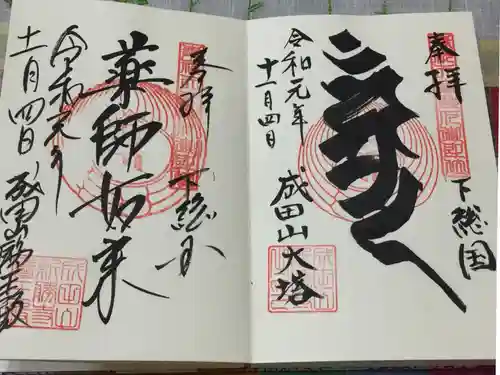 奉拝
下総国
成田山大塔
令和元年
十一月四日
奉拝
下総国
薬師如来
令和元年
十一月四日
成田山醫王殿
成田山
新勝寺